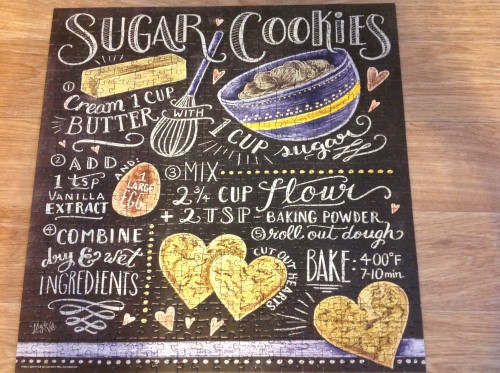 SUGAR COOKIES
① Cream 1 CUP
BUTTER WITH
1 CUP sugar
② ADD
1 tsp
VANILLA
EXTRACT
AND:
1 LARGE
EGG
③ MIX
2 3/4 CUP flour
+ 2 TSP BAKING POWDER
④ COMBINE
dry & wet
INGREDIENTS
⑤ roll out dough
CUT OUT HEARTS
BAKE: 400°F
7-10 min